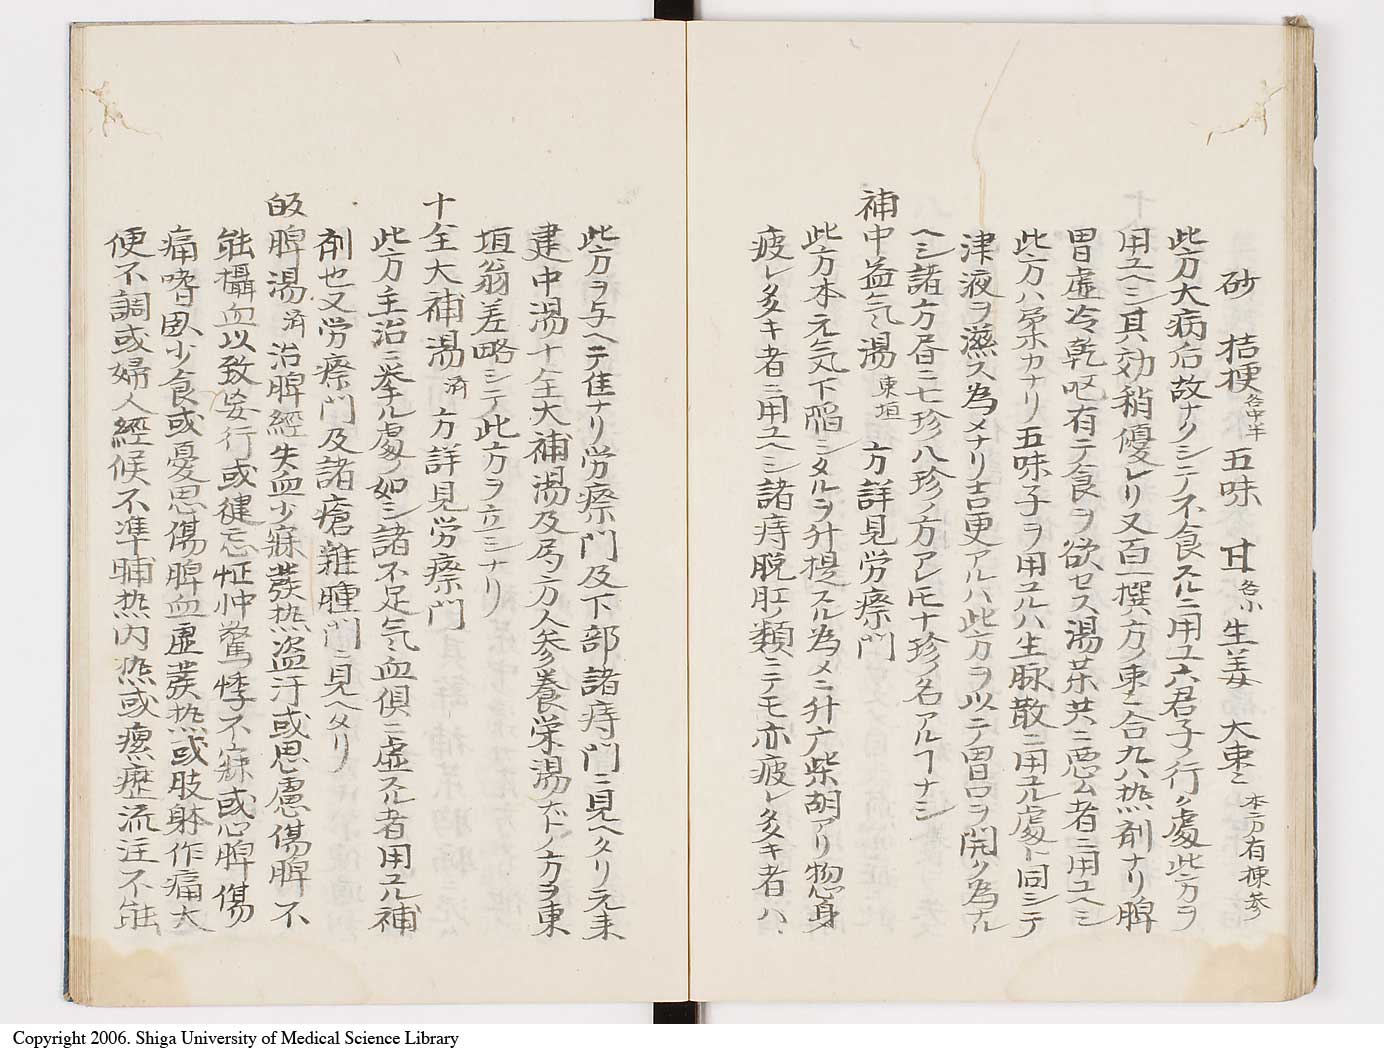 砂 桔梗各中半五味 甘各小生姜 大棗二 本方有揀参
此方大病后故ナクシテ不食スルニ用ユ六君子ノ行ク處此方ヲ
用ユヘシ其効稍優レリ又百一撰方ノ東二合九八热剤ナリ脾
胃虚冷乾呕有テ食ヲ欲セス湯茶共ニ悪ム者ニ用ユヘシ
此方ハ弟カナリ五味子ヲ用ユルハ生脉散ニ用ユル處ト同シテ
津液ヲ滋ス為メナリ吉更アルハ此方ヲ以テ胃口ヲ開ク為ナル
ヘシ諸方昼ニ七珍八珍ノ方アレモ十珍ノ名アルヿナシ
補中益気湯東垣 方詳見労瘵門
此方本元気下陥シタルヲ升提スル為メニ升广柴胡アリ惣身
疲レ多キ者ニ用ユヘシ諸痔脱肛ノ類ニテモ亦疲レ多キ者ハ、
此方ヲ与ヘテ佳ナリ労瘵門及下部諸痔門ニ見ヘタリ元来
建中湯十全大補湯及局方人参養栄湯ナドノ方ヲ東
垣翁差略シテ此方ヲ立シナリ
十全大補湯済 方詳見労瘵門
此方主治ニ挙ル處ノ如シ諸不足気血俱ニ虚スル者用ユル補
剤也又労瘵門及諸瘡雑腫門ニ見ヘタリ
皈脾湯済治脾經失血少寐蒸热盗汗或思慮傷脾不
能攝血以致妄行或健忘怔忡驚悸不寐或心脾傷
痛嗜臥少食或憂思傷脾血虚蒸热或肢躰作痛大
便不調或婦人經候不準晡热内热或瘰癧流注不能